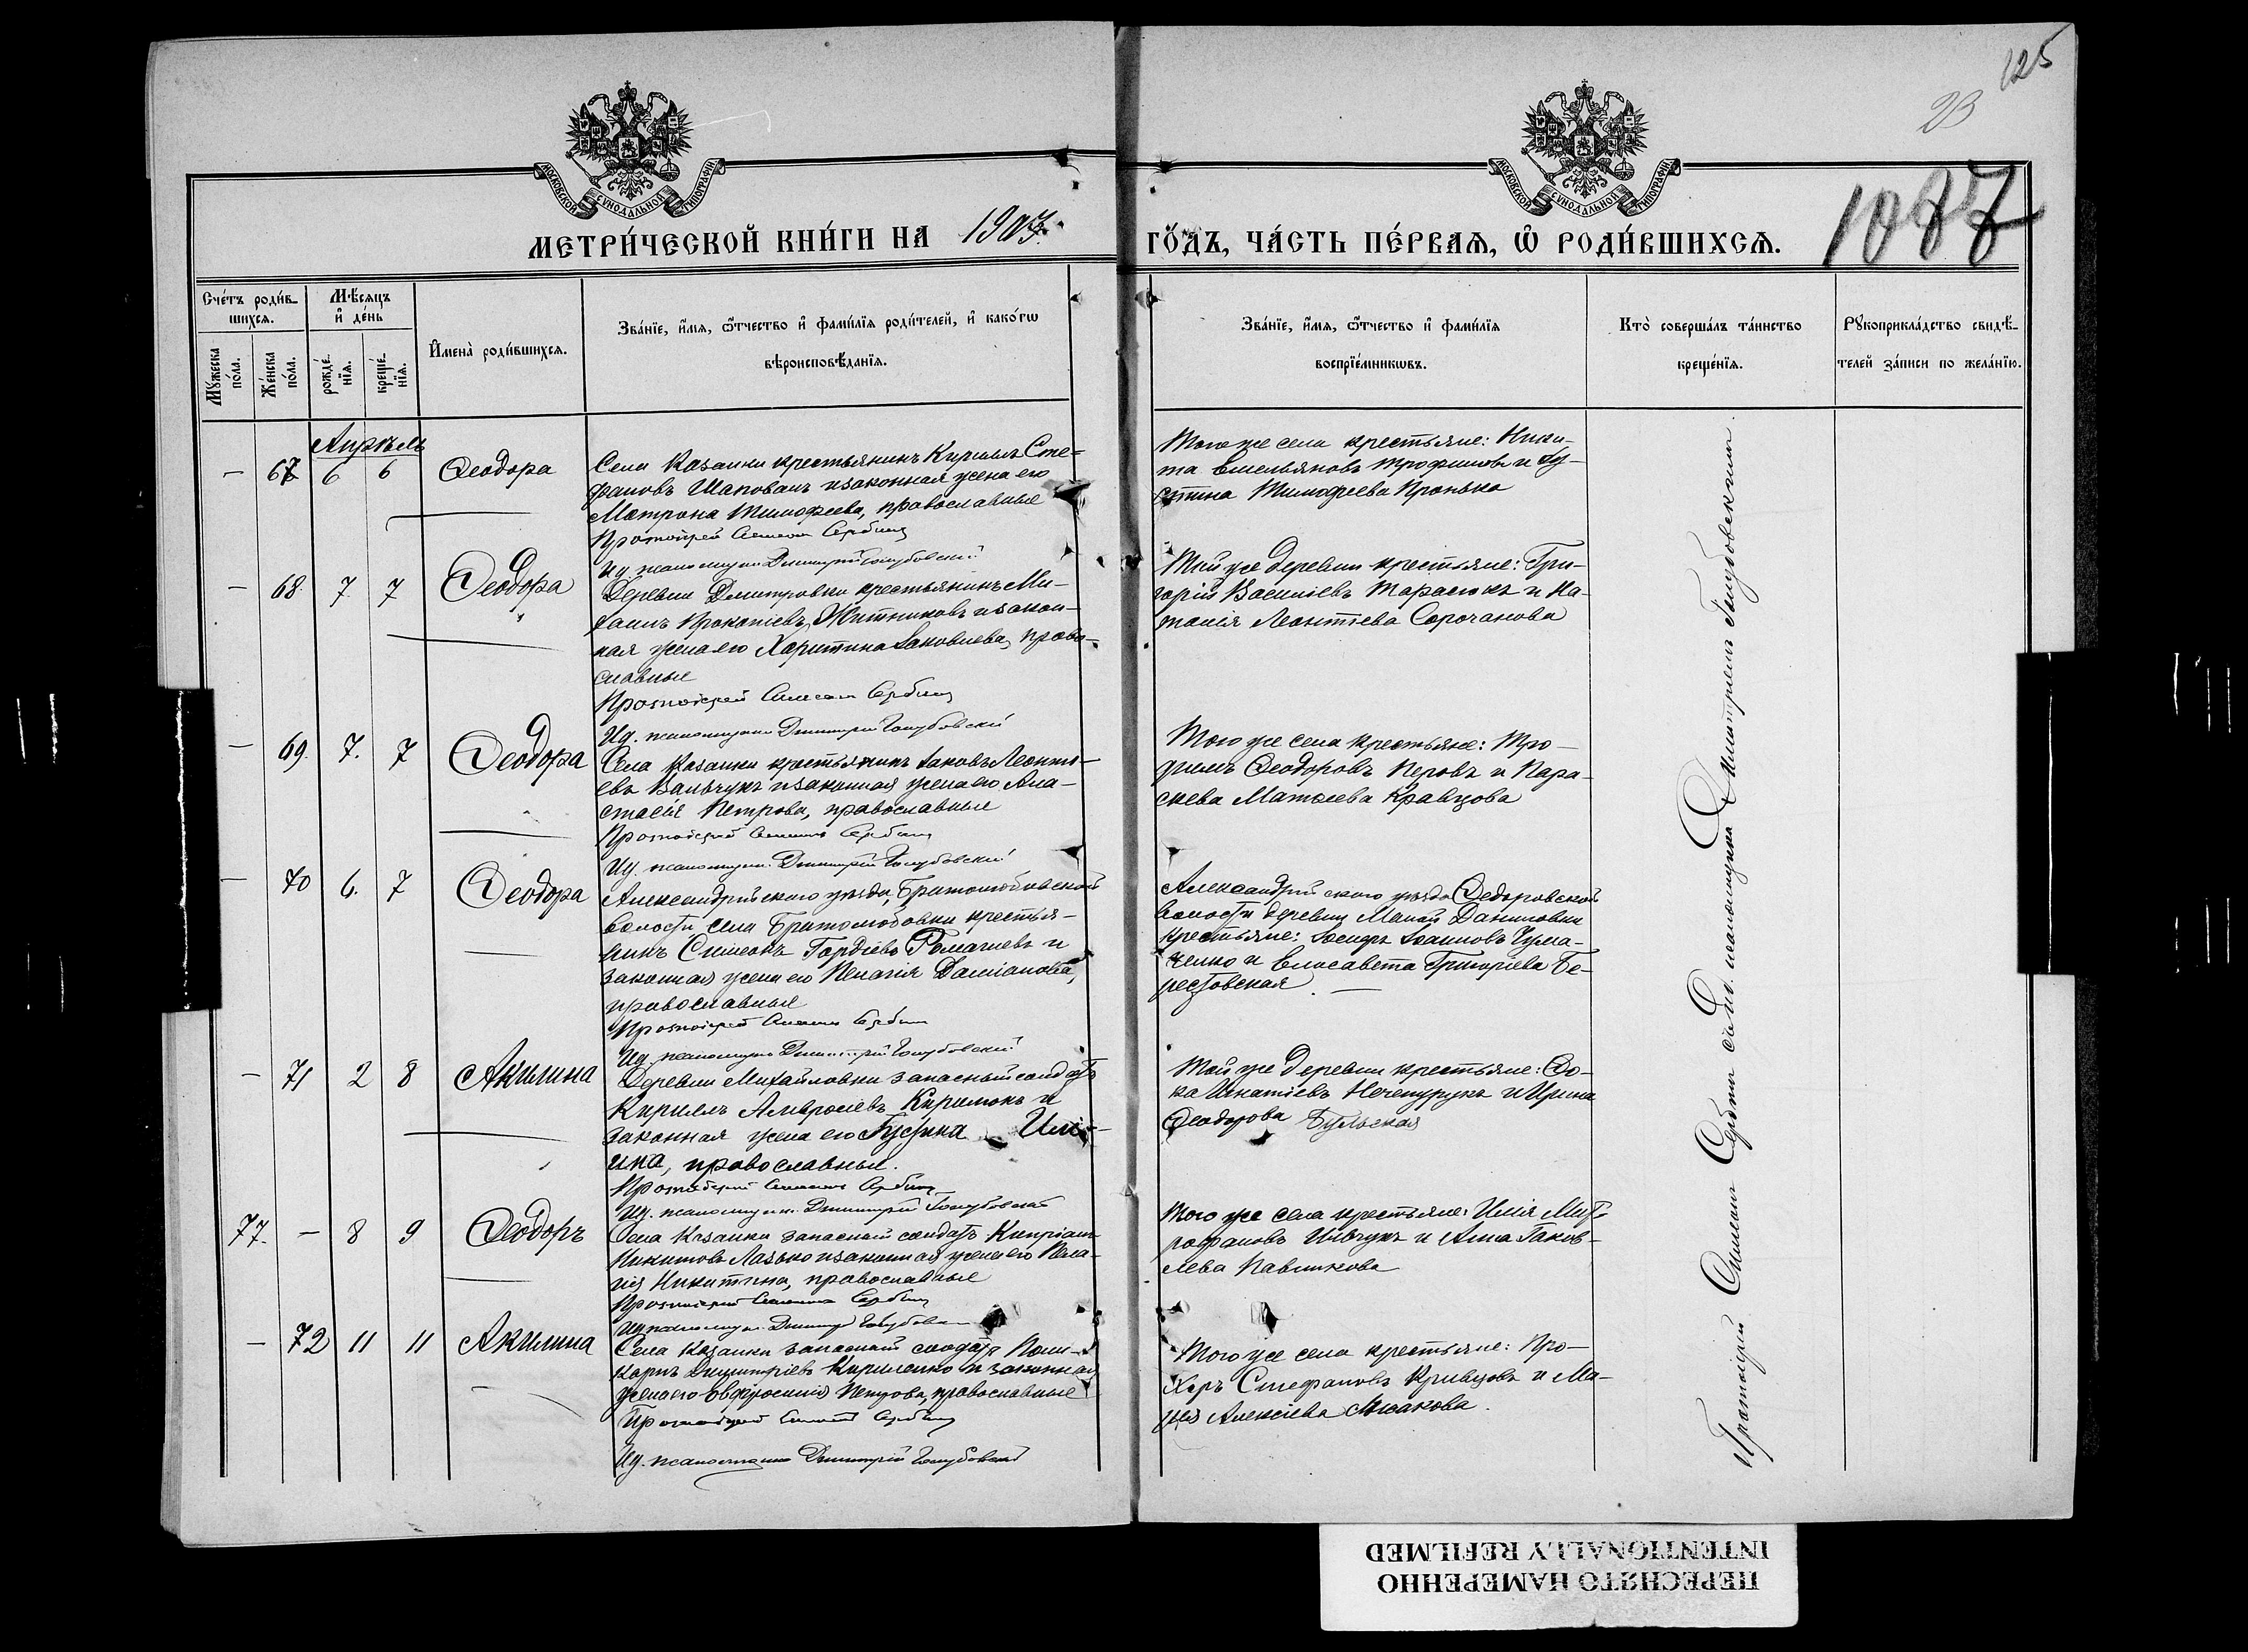 125
23
МОСКОВСКОЙ СУНОДАЛЬНОЙ ТИПОГРАФІИ
МОСКОВСКОЙ СУНОДАЛЬНОЙ ТИПОГРАФІИ
МЕТРИ́ЧЕСКОЙ КНИ́ГИ НА 1907
ГО́ДЪ, ЧА́СТЬ ПЕ́РВАѦ, Ѡ҆ РОДИ́ВШИХСѦ.
1087
Сче́тъ роди́в-
шихсѧ.
Мѣ́сѧцъ
и҆ де́нь
Мꙋ́жеска
по́ла.
Же́нска
по́ла.
рожде́-
нїѧ.
креще́-
нїѧ.
И҆мена̀ роди́вшихсѧ.
Зва́нїе, и҆́мѧ, ѻ҆́тчество и҆ фами́лїѧ роди́телей, и҆ како́гѡ
вѣроисповѣ́данїѧ.
Зва́нїе, и҆́мѧ, ѻ҆́тчество и҆ фами́лїѧ
воспрїе́мникѡвъ.
Кто̀ соверша́лъ та́инство
креще́нїѧ.
Рꙋкоприкла́дство свидѣ́-
телей за́писи по жела́нїю.
Апрѣль
— 67 6 6 Ѳеодора
Села Казанки крестьянинъ Кириллъ Сте-
фановъ Шаповалъ и законная жена его
Матрона Тимофеева, православные
Протоіерей Симеонъ Сербинъ
Ид. псаломщика Димитрій Голубовскій
Того же села крестьяне: Ники-
та Емельяновъ Трофимовъ и Іу-
стина Тимофеева Пронько
— 68. 7 7 Ѳеодора
Деревни Дмитровки крестьянинъ Ми-
хаилъ Прокопіевъ Житниковъ и закон-
ная жена его Харитина Іаковлева, право-
славные
Протоіерей Симеонъ Сербинъ
Ид. псаломщика Димитрій Голубовскій
Той же деревни крестьяне: Гри-
горій Василіевъ Тарасюкъ и На-
талія Леонтіева Сорочанова
— 69. 7. 7 Ѳеодора
Села Казанки крестьянинъ Іаковъ Леонті-
евъ Вальчукъ и законная жена его Ана-
стасія Петрова, православные
Протоіерей Симеонъ Сербинъ
Ид. псаломщика Димитрій Голубовскій
Того же села крестьяне: Тро-
фимъ Ѳеодоровъ Перовъ и Пара-
скева Матѳеева Кравцова
— 70 6. 7 Ѳеодора
Александрійскаго уѣзда, Братолюбовской
волости села Братолюбовки крестья-
нинъ Симеонъ Гордіевъ Ромачевъ и
законная жена его Пелагія Даміанова,
православные
Протоіерей Симеонъ Сербинъ
Ид. псаломщика Димитрій Голубовскій
Александрійскаго уѣзда Ѳедоровской
волости деревни Малой Даниловки
крестьяне: Іосифъ Іоанновъ Чума-
ченко и Елисавета Григоріева Бе-
рестовская
— 71 2 8 Акилина
Деревни Михайловки запасный солдатъ
Кириллъ Амвросіевъ Киримокъ и
законная жена его Іустина Илі-
ина, православные.
Протоіерей Симеонъ Сербинъ
Ид. псаломщика Димитрій Голубовскій
Той же деревни крестьяне: Ѳо-
ка Игнатіевъ Нечепурукъ и Ирина
Ѳеодорова Бульская
77. — 8 9 Ѳеодоръ
Села Казанки запасный солдатъ Кипріанъ
Никитовъ Лазько и законная жена его Пела-
гія Никитина, православные
Протоіерей Симеонъ Сербинъ
Ид. псаломщика Димитрій Голубовскій
Того же села крестьяне: Илія Мит-
рофановъ Шевчукъ и Анна Іаков-
лева Павликова
— 72 11 11 Акилина
Села Казанки запасный солдатъ Поли-
карпъ Димитріевъ Кириленко и законная
жена его Евфросинія Петрова, православные
Протоіерей Симеонъ Сербинъ
Ид. псаломщика Димитрій Голубовскій
Того же села крестьяне: Про-
хоръ Стефановъ Кривцовъ и Ма-
рія Алексіева
Протоіерей Симеонъ Сербинъ съ и. д. псаломщика Димитріемъ Голубовскимъ
ПЕРЕСНЯТО НАМЕРЕННО
INTENTIONALLY REFILMED